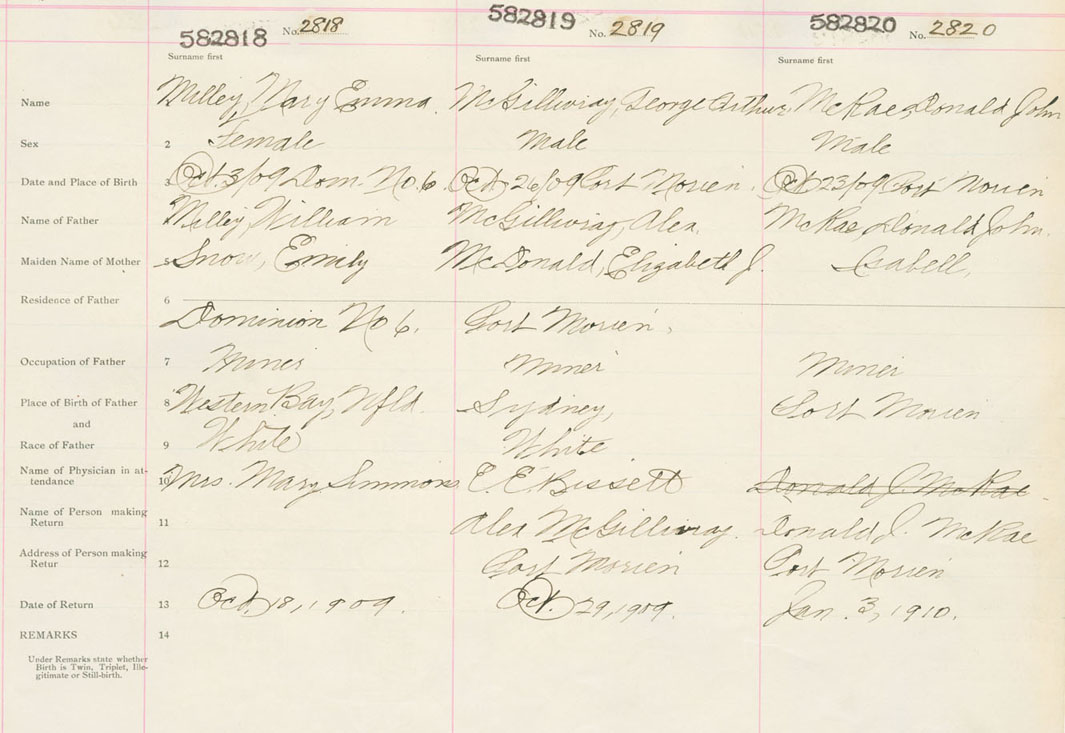 582818 No. 2818 582819 No. 2819 582820 No. 2820
Surname first Surname first Surname first
Name Milley, Mary Emma. McGilliwray, George Arthur, McRae, Donald John
Sex 2 Female Male Male
Date and Place of Birth 3 Oct. 3/09 Dom. No. 6. Oct. 26/09 Port Morien. Oct 23/09 Port Morien
Name of Father Milley, William McGilliwray, Alex. McRae, Donald John.
Maiden Name of Mother 5 Snow, Emily McDonald, Elizabeth J. Isabell,
Residence of Father 6
Dominion No 6. Port Morien.
Occupation of Father 7 Miner Miner Miner
Place of Birth of Father 8 Western Bay, Nfld. Sydney, Port Morien
and
Race of Father 9 White White
Name of Physician in at-
tendance 10 Mrs. Mary Simmons E. E. Bissett Donald J. McRae
Name of Person making
Return 11 Alex McGilliwray. Donald J. McRae
Address of Person making
Retur 12 Port Morien Port Morien
Date of Return 13 Oct. 18, 1909. Oct. 29, 1909. Jan. 3, 1910.
REMARKS 14
Under Remarks state whether
Birth is Twin, Triplet, Ille-
gitimate or Still-birth.